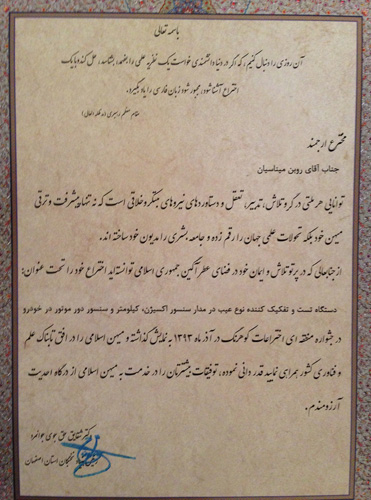 باسمه تعالی
آن روزی را دنبال کنیم، که اگر در دنیا دانشمندی خواست یک نظریه علمی را بفهمد، بشناسد، حل کند و با یک
اختراع آشنا شود، مجبور شود زبان فارسی را یاد بگیرد.
مقام معظم رهبری (مدظله العالی)
مخترع ارجمند
جناب آقای روبن میناسیان
توانایی هر ملتی در گرو تلاش، تدبیر، تعقل و دستاوردهای نیروهای مبتکر و خلاقی است که نه تنها پیشرفت و ترقی
میهن خود بلکه تحولات علمی جهان را رقم زده و جامعه بشری را مدیون خود ساخته اند.
از جنابعالی که در پرتو تلاش و ایمان خود در فضای عطر آگین جمهوری اسلامی توانسته اید اختراع خود را تحت عنوان:
دستگاه تست و تفکیک کننده نوع عیب در مدار سنسور اکسیژن، کیلومتر و سنسور دور موتور در خودرو
در جشنواره منطقه ای اختراعات کوهرنگ در آذر ماه ۱۳۹۳ به نمایش گذاشته و میهن اسلامی را در افق تابناک علم
و فناوری کشور همراهی نمایید قدر دانی نموده، توفیقات بیشترتان را در خدمت به میهن اسلامی از درگاه احدیت
آرزومندم.
دکتر شقایق حق جوی جوانمرد
نخبگان استان اصفهان